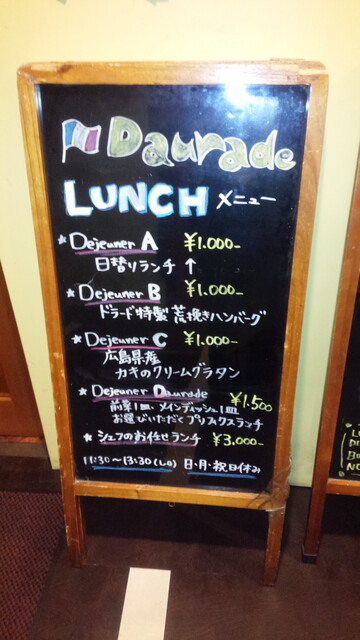 Daurade
LUNCH メニュー
★ Dejeuner A ¥1.000-
日替りランチ ↑
★ Dejeuner B ¥1.000-
ドラード特製 荒挽きハンバーグ
★ Dejeuner C ¥1.000-
広島県産
カキのクリームグラタン
★ Dejeuner Daurade ¥1.500
前菜1皿・メインディッシュ1皿
お選びいただくプリフィクスランチ
★ シェフのお任せランチ ¥3.000-
11:30〜13:30(L.O) 日・月・祝日休み